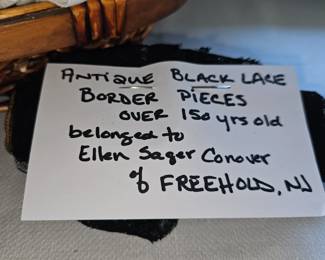 ANTIQUE BLACK LACE
BORDER PIECES
OVER 150 yrs old
belonged to
Ellen Sager Conover
of FREEHOLD, NJ